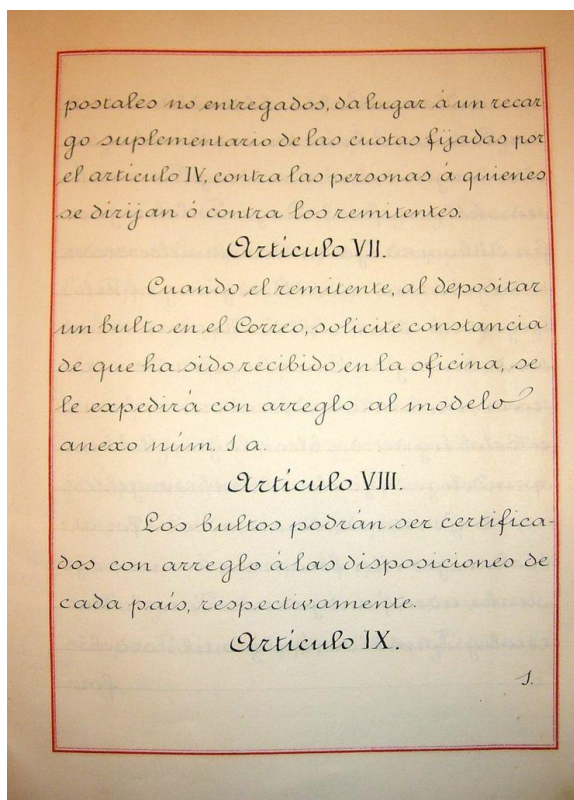 postales no entregados, da lugar á un recar
go suplementario de las cuotas fijadas por
el artículo IV, contra las personas á quienes
se dirijan ó contra los remitentes.
Artículo VII.
Cuando el remitente, al depositar
un bulto en el Correo, solicite constancia
de que ha sido recibido en la oficina, se
le expedirá con arreglo al modelo
anexo núm. 1 a.
Artículo VIII.
Los bultos podrán ser certifica-
dos con arreglo á las disposiciones de
cada país, respectivamente.
Artículo IX.
1.